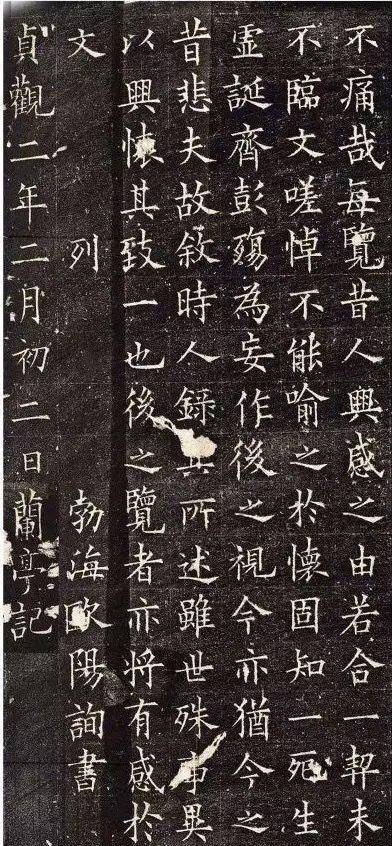 不痛哉每覽昔人興感之由若合一契未
不臨文嗟悼不能喻之於懷固知一死生
虛誕齊彭殤為妄作後之視今亦猶今之
昔悲夫故敘時人錄其所述雖世殊事異
以興懷其致一也後之覽者亦將有感於
文 列 勃海歐陽詢書
貞觀二年二月初二日蘭亭記